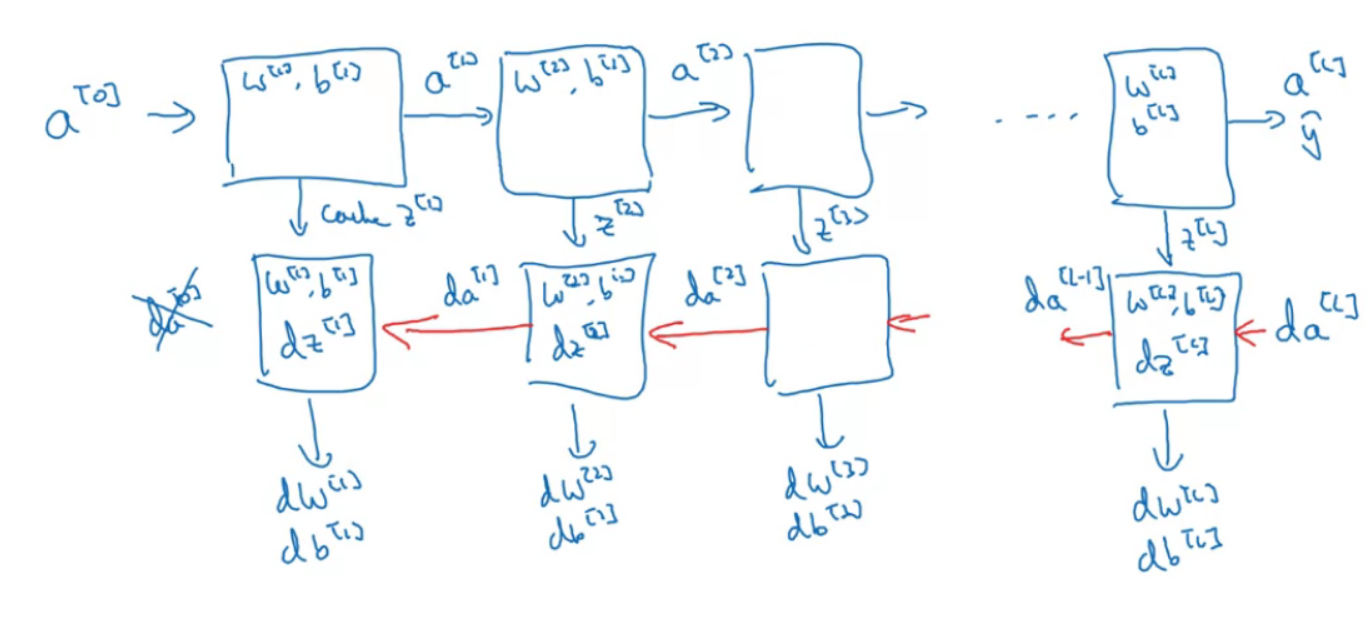 a^[0]
w^[1], b^[1]
a^[1]
w^[2], b^[2]
a^[2]
....
w^[L]
b^[L]
a^[L]
ŷ
cache z^[1]
z^[2]
z^[3]
z^[L]
da^[0]
w^[1], b^[1]
dz^[1]
da^[1]
w^[2], b^[2]
dz^[2]
da^[2]
da^[L-1]
w^[L], b^[L]
dz^[L]
da^[L]
dw^[1]
db^[1]
dw^[2]
db^[2]
dw^[3]
db^[3]
dw^[L]
db^[L]